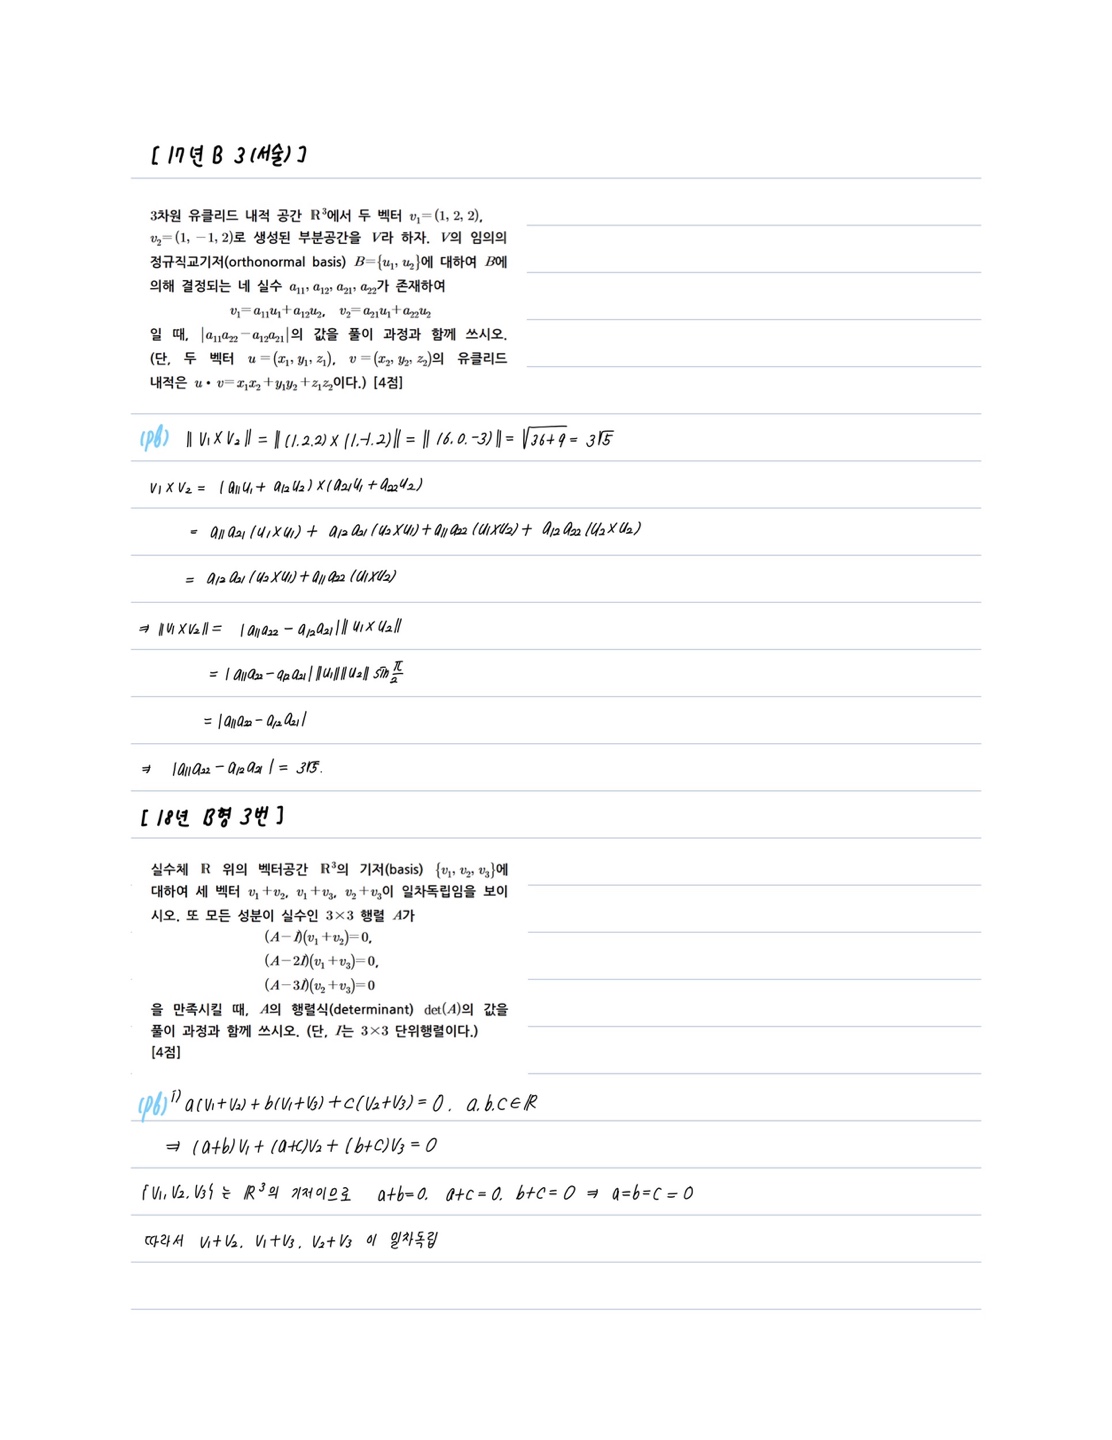 [ 17년 B 3 (서술) ]
3차원 유클리드 내적 공간 ℝ³에서 두 벡터 v₁=(1, 2, 2),
v₂=(1, −1, 2)로 생성된 부분공간을 V라 하자. V의 임의의
정규직교기저(orthonormal basis) B={u₁, u₂}에 대하여 B에
의해 결정되는 네 실수 a₁₁, a₁₂, a₂₁, a₂₂가 존재하여
v₁=a₁₁u₁+a₁₂u₂, v₂=a₂₁u₁+a₂₂u₂
일 때, |a₁₁a₂₂−a₁₂a₂₁|의 값을 풀이 과정과 함께 쓰시오.
(단, 두 벡터 u=(x₁, y₁, z₁), v=(x₂, y₂, z₂)의 유클리드
내적은 u•v=x₁x₂+y₁y₂+z₁z₂이다.) [4점]
(pf) ‖V₁×V₂‖ = ‖(1.2.2)×(1.-1.2)‖ = ‖(6.0.-3)‖ = √36+9 = 3√5
V₁×V₂ = (a₁₁u₁+a₁₂u₂)×(a₂₁u₁+a₂₂u₂)
= a₁₁a₂₁(u₁×u₁) + a₁₂a₂₁(u₂×u₁)+a₁₁a₂₂(u₁×u₂)+ a₁₂a₂₂(u₂×u₂)
= a₁₂a₂₁(u₂×u₁)+a₁₁a₂₂(u₁×u₂)
⇒ ‖V₁×V₂‖ = |a₁₁a₂₂ − a₁₂a₂₁|‖u₁×u₂‖
= |a₁₁a₂₂−a₁₂a₂₁|‖u₁‖‖u₂‖ sin π/2
= |a₁₁a₂₂−a₁₂a₂₁|
⇒ |a₁₁a₂₂−a₁₂a₂₁| = 3√5.
[ 18년 B형 3번 ]
실수체 ℝ 위의 벡터공간 ℝ³의 기저(basis) {v₁, v₂, v₃}에
대하여 세 벡터 v₁+v₂, v₁+v₃, v₂+v₃이 일차독립임을 보이
시오. 또 모든 성분이 실수인 3×3 행렬 A가
(A−I)(v₁+v₂)=0,
(A−2I)(v₁+v₃)=0,
(A−3I)(v₂+v₃)=0
을 만족시킬 때, A의 행렬식(determinant) det(A)의 값을
풀이 과정과 함께 쓰시오. (단, I는 3×3 단위행렬이다.)
[4점]
(pf) i) a(V₁+V₂)+b(V₁+V₃)+c(V₂+V₃)=0. a.b.c∈ℝ
⇒ (a+b)V₁+(a+c)V₂+(b+c)V₃=0
{V₁,V₂,V₃}는 ℝ³의 기저이므로 a+b=0. a+c=0. b+c=0 ⇒ a=b=c=0
따라서 V₁+V₂. V₁+V₃. V₂+V₃ 이 일차독립